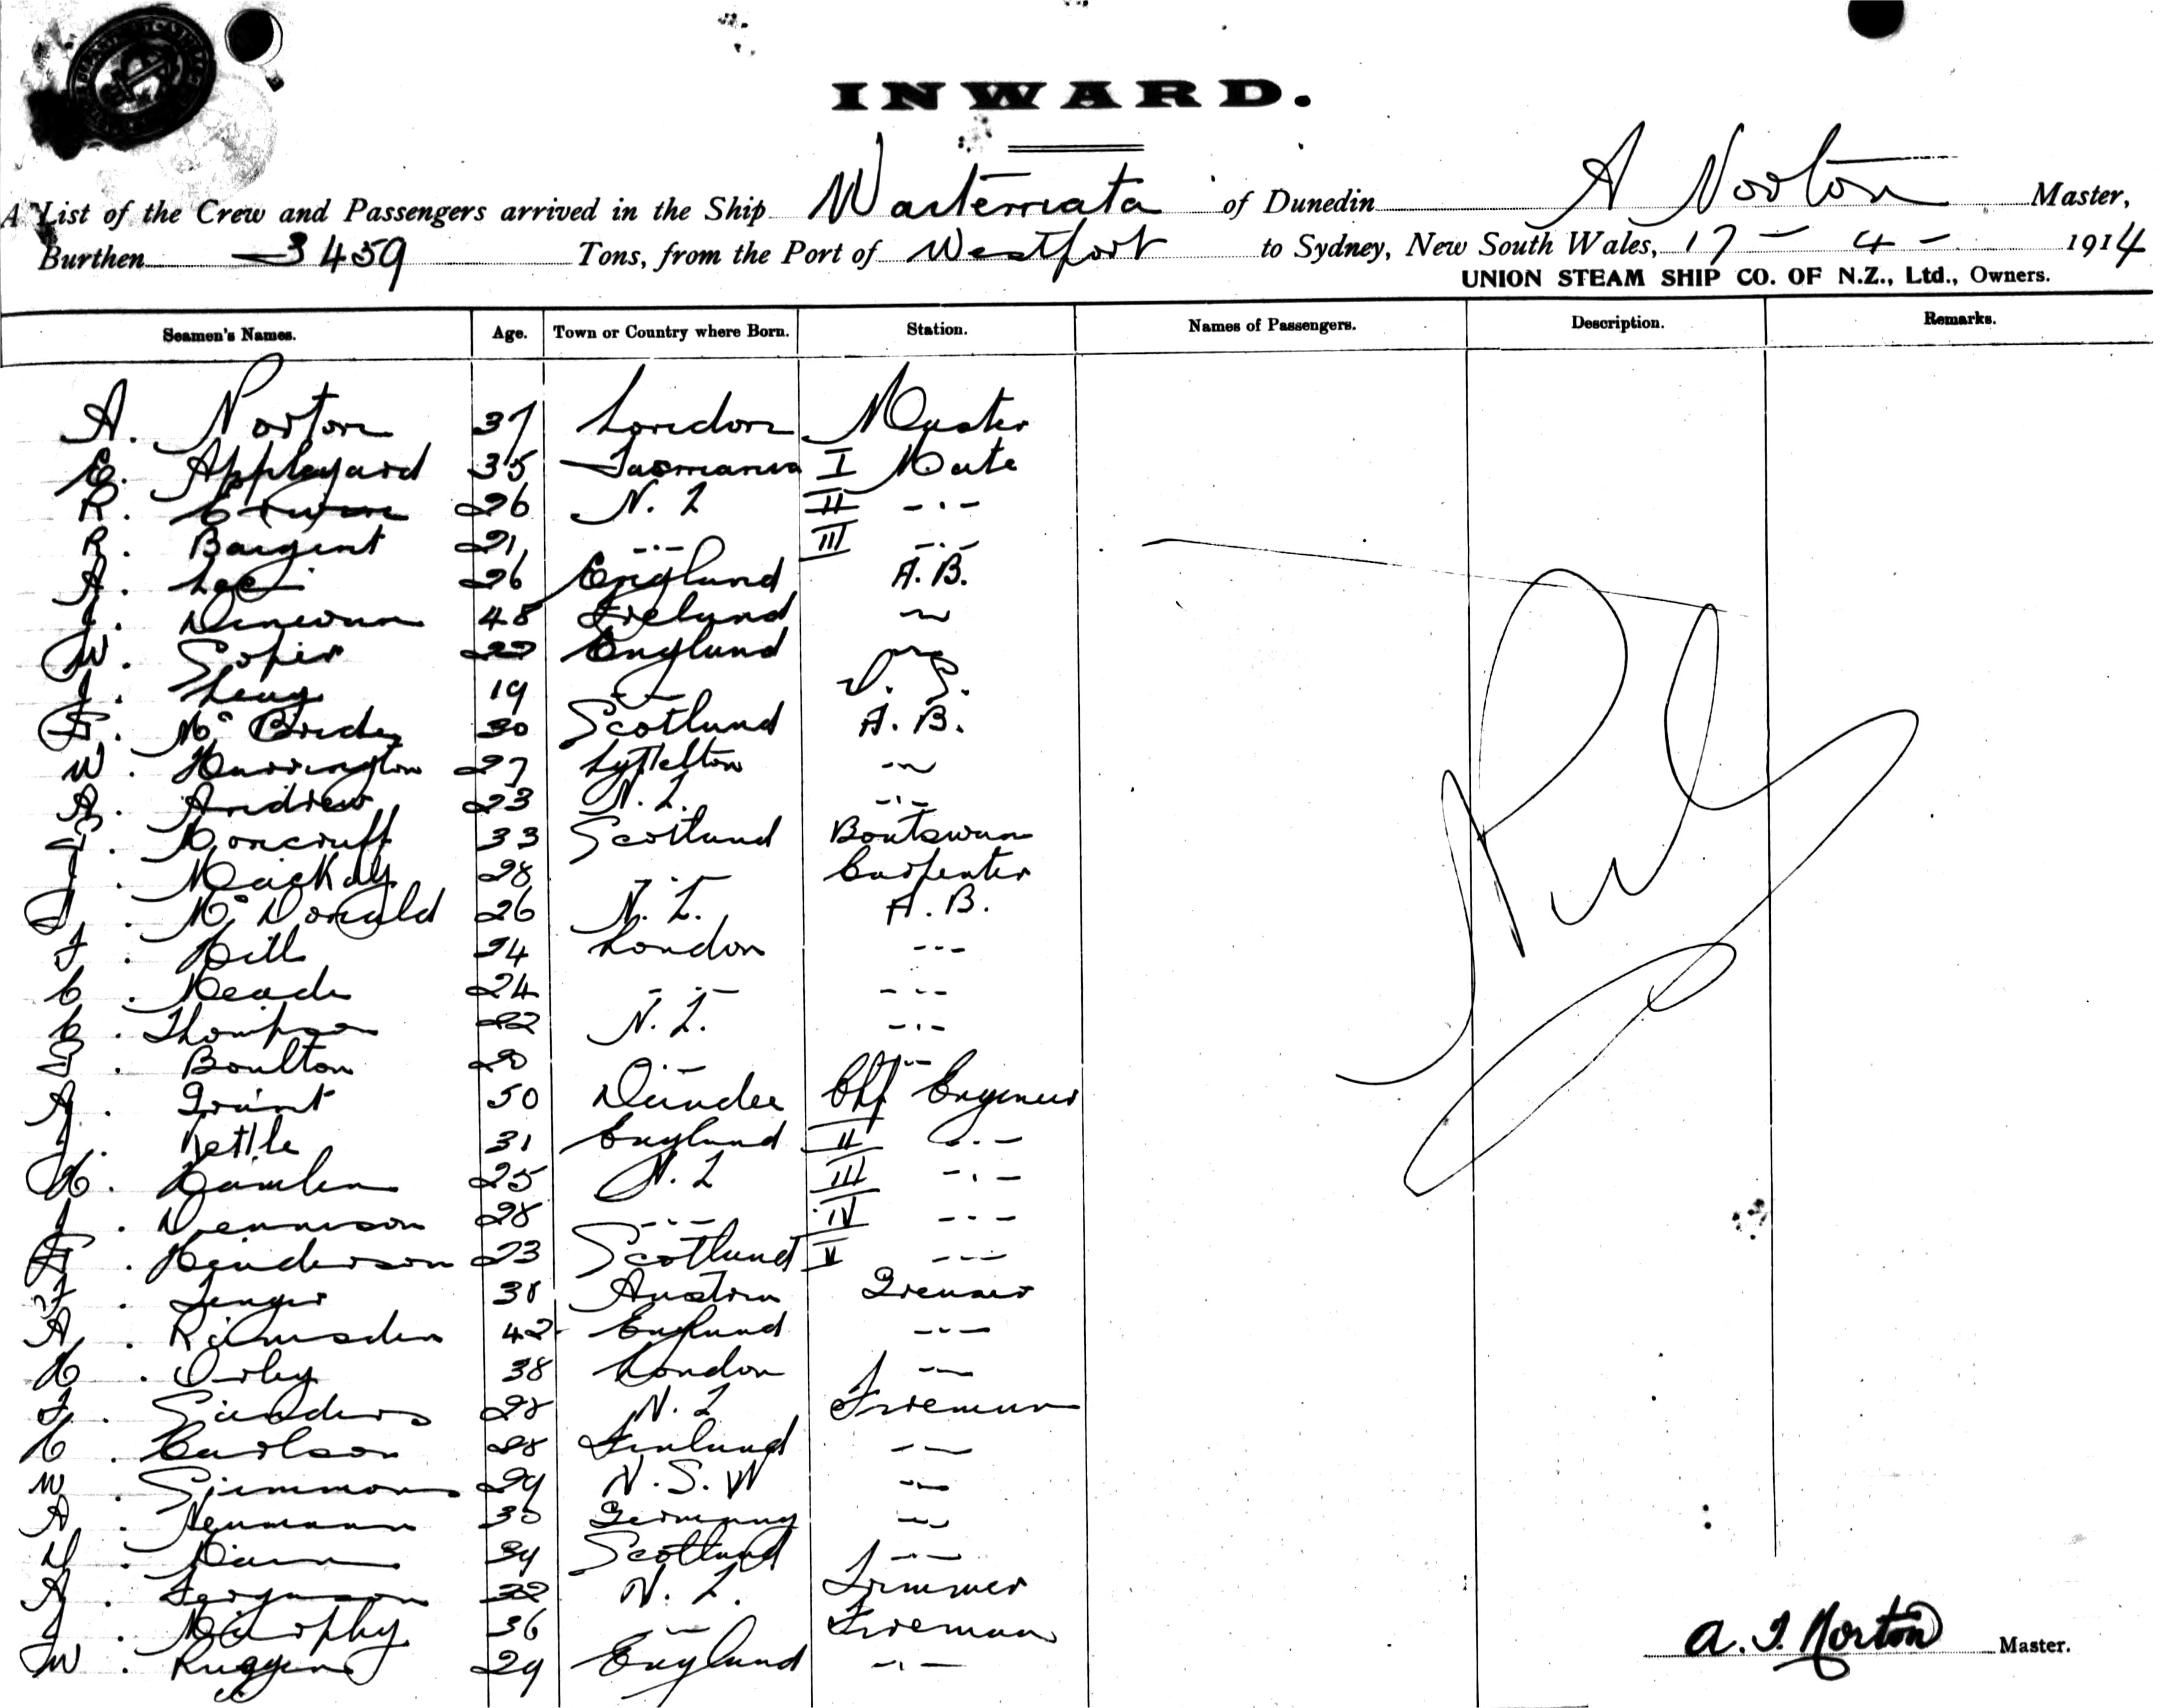 INWARD.
A List of the Crew and Passengers arrived in the Ship Waitemata of Dunedin A Norton Master,
Burthen 3459 Tons, from the Port of Westport to Sydney, New South Wales, 17 - 4 - 1914
UNION STEAM SHIP CO. OF N.Z., Ltd., Owners.
Seamen's Names. Age. Town or Country where Born. Station. Names of Passengers. Description. Remarks.
A. Norton 37 London Master
E. Appleyard 35 Tasmania I Mate
R. 26 N. Z II -·-
R. Bargent 21 -·- III -·-
A. Lee 26 England A. B.
J. Denewan 48 Ireland
W. Soper 22 England
J. 19 -- O. S.
F. McBride 30 Scotland A. B.
W. Harrington 27 Lyttelton -·-
A. Andrew 23 N. Z. -·-
G. Moncrieff 33 Scotland Boatswain
J. MacKay 28 -·- Carpenter
J. McDonald 26 N. Z. A. B.
F. Hill 24 London ---
C. Meade 24 -·- ---
C. Thompson 22 N. Z. -·-
T. Boulton 20 -·- -·-
A. Grant 50 Dundee Chf Engineer
J. Kettle 31 England II -·-
H. Hamlin 25 N. Z III -·-
J. Dennison 28 --- IV ---
F. Henderson 23 Scotland V ---
38 Austria Greaser
A. Ramsden 42 England ---
H. Orley 38 London --
F. Sanders 28 N. Z Fireman
C. Carlson 28 Finland --
W. Simmons 29 N. S. W --
A. Neumann 30 Germany --
34 Scotland --
A. Ferguson 32 N. Z. Trimmer
J. Murphy 36 -- Fireman
W. 29 England -·-
A. J. Norton Master.